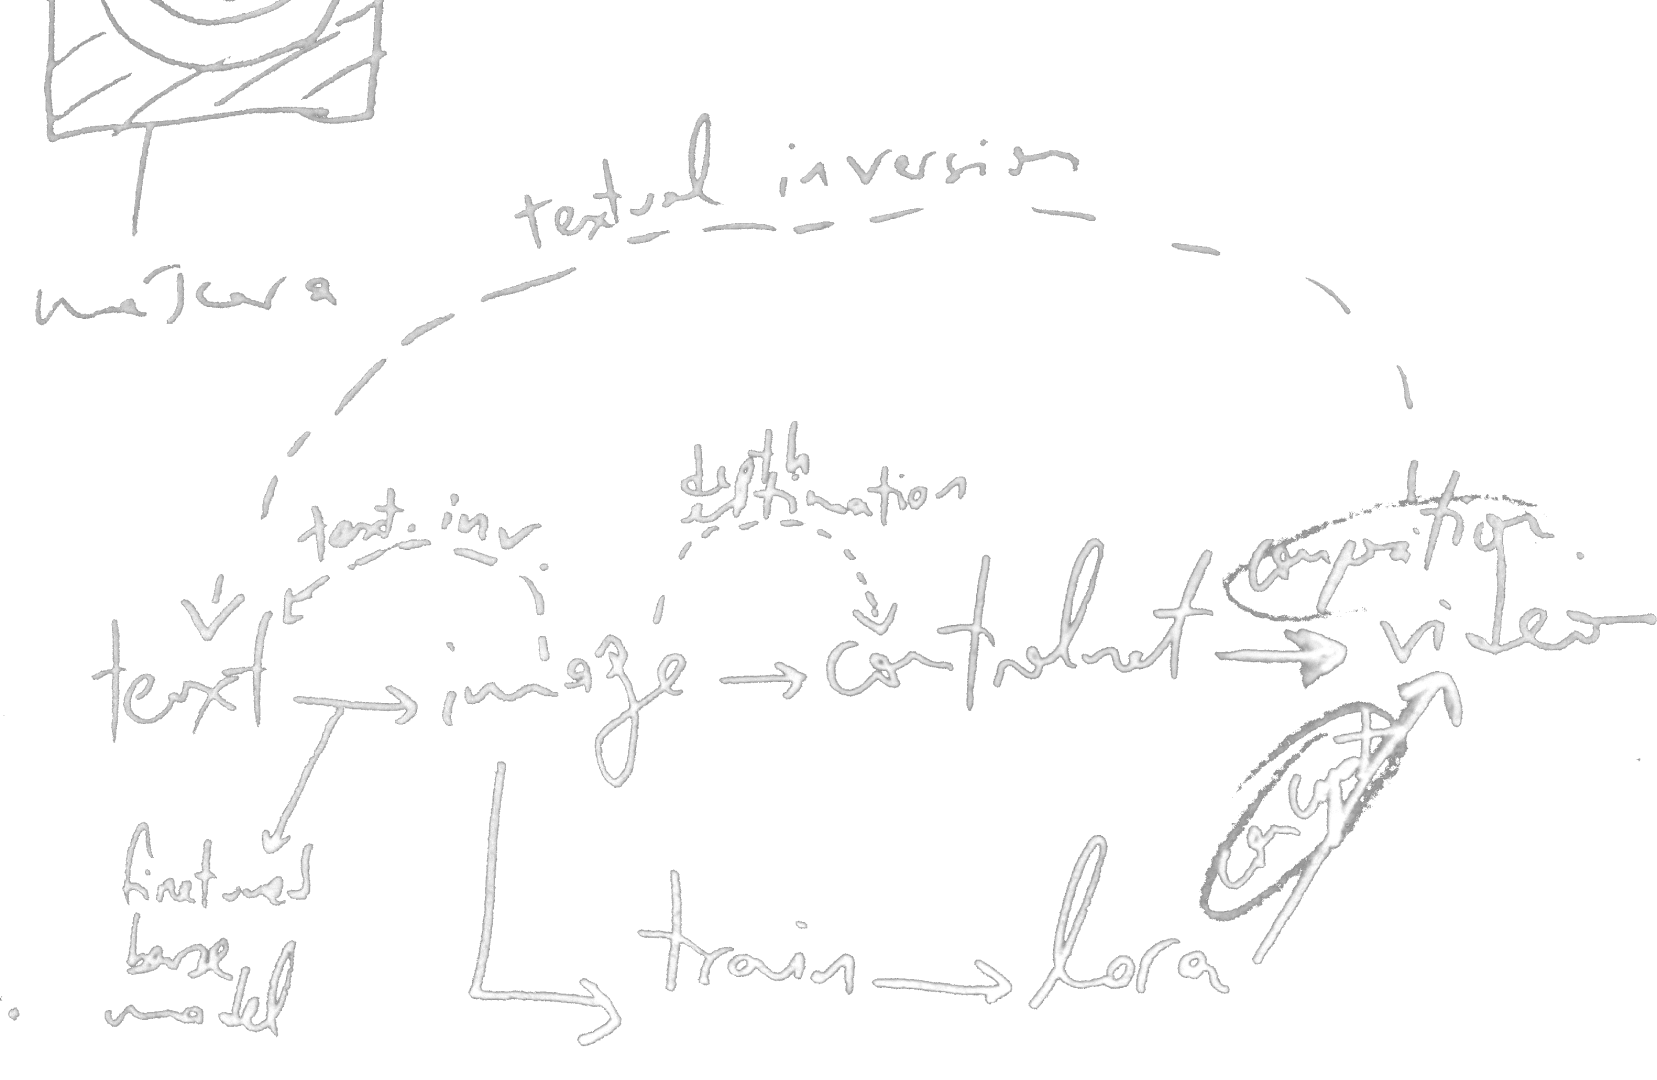 máscara
textual inversion
text. inv
depth
estimation
composition
text
image
controlnet
video
finetuned
base
model
train
lora